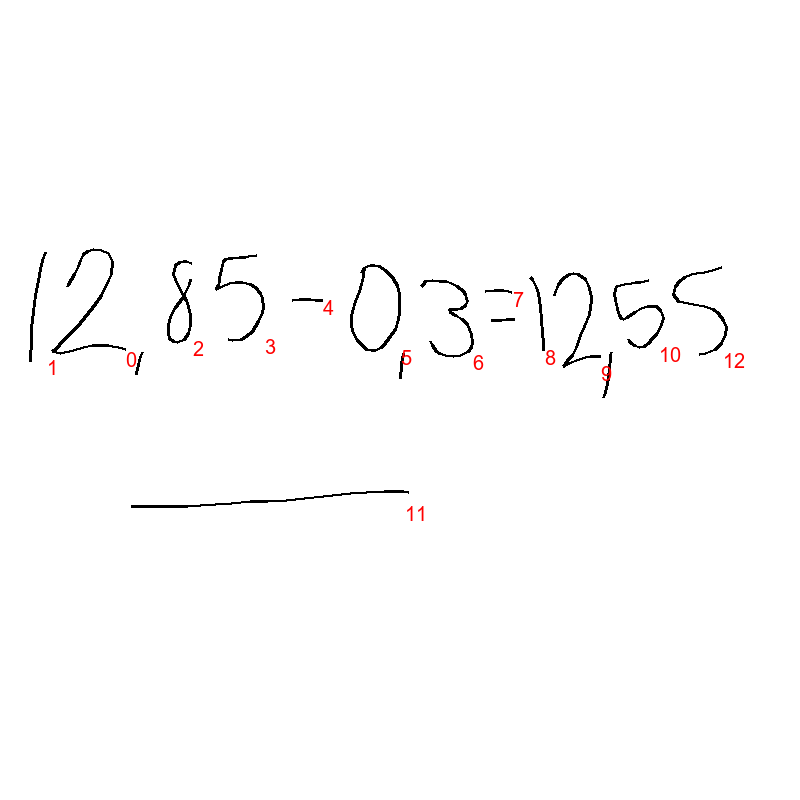 12,85-0,3=12,55
1 0 2 3 4 5 6 7 8 9 10 12
11